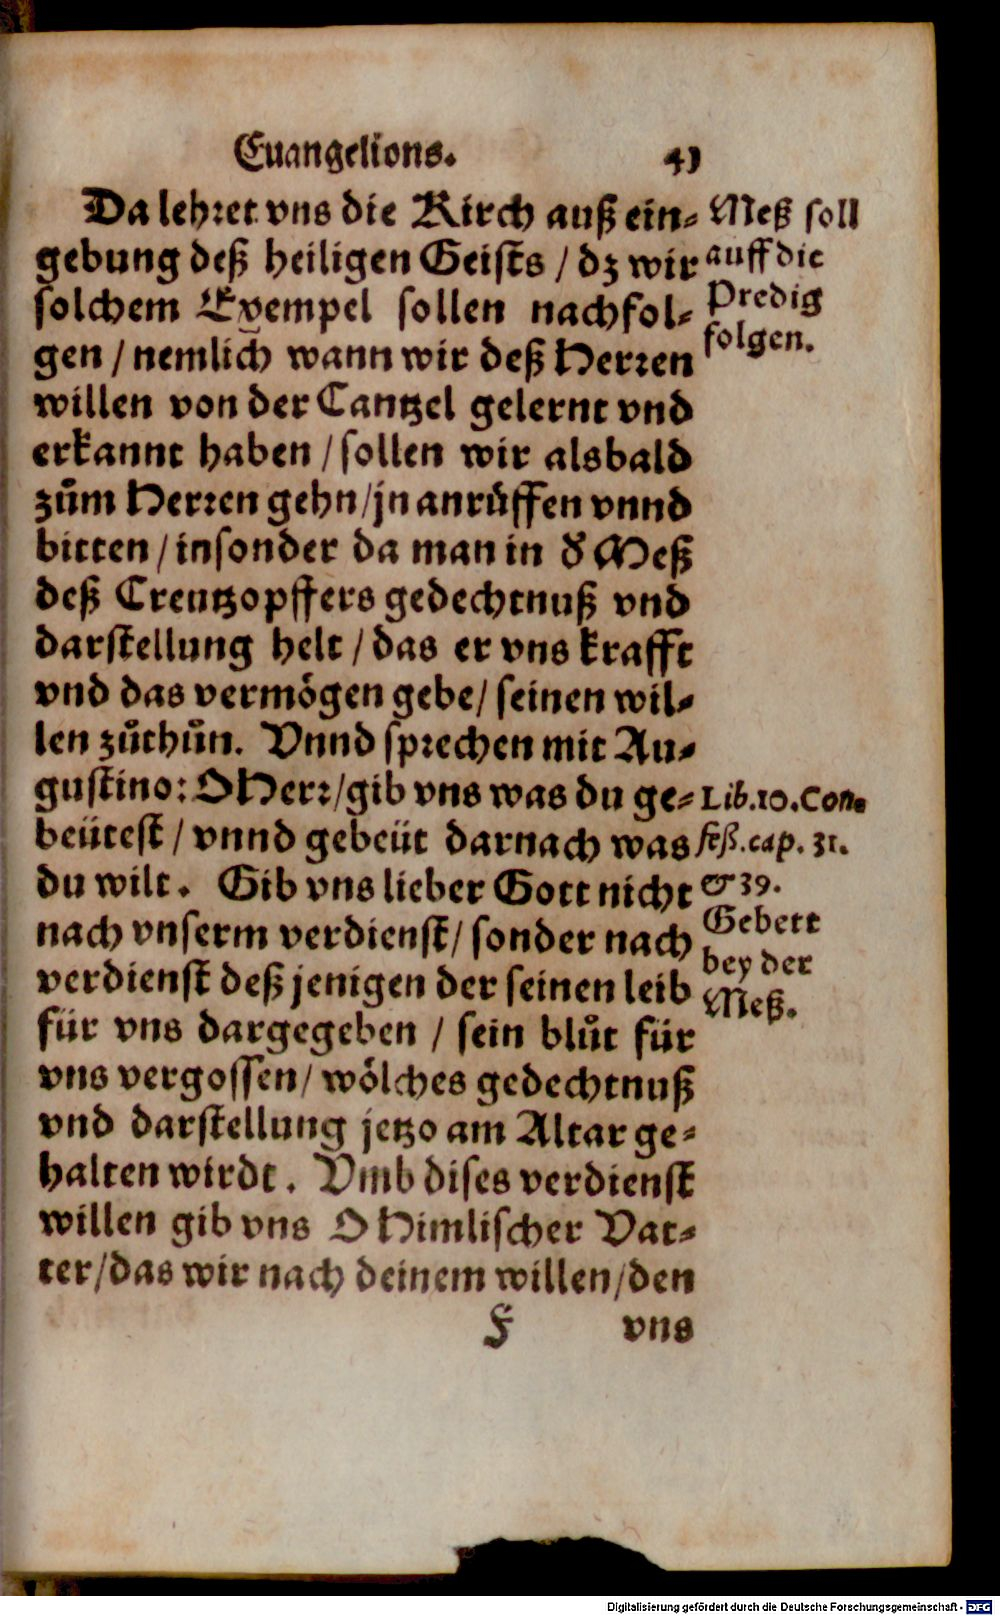 Euangelions. 41
Da lehret vns die Kirch auß ein-
gebung deß heiligen Geists / dz wir
solchem Exempel sollen nachfol-
gen / nemlich wann wir deß Herren
willen von der Cantzel gelernt vnd
erkannt haben / sollen wir alsbald
zům Herren gehn / jn anrůffen vnnd
bitten / insonder da man in d' Meß
deß Creutzopffers gedechtnuß vnd
darstellung helt / das er vns krafft
vnd das vermögen gebe / seinen wil-
len zůthůn. Vnnd sprechen mit Au-
gustino: O Herr / gib vns was du ge-
beütest / vnnd gebeüt darnach was
du wilt. Gib vns lieber Gott nicht
nach vnserm verdienst / sonder nach
verdienst deß jenigen der seinen leib
für vns dargegeben / sein blůt für
vns vergossen / wölches gedechtnuß
vnd darstellung jetzo am Altar ge-
halten wirdt. Vmb dises verdienst
willen gib vns O Himlischer Vat-
ter / das wir nach deinem willen / den
F vns
Meß soll
auff die
Predig
folgen.
Lib. 10. Con-
feß. cap. 31.
& 39.
Gebett
bey der
Meß.
Digitalisierung gefördert durch die Deutsche Forschungsgemeinschaft - DFG